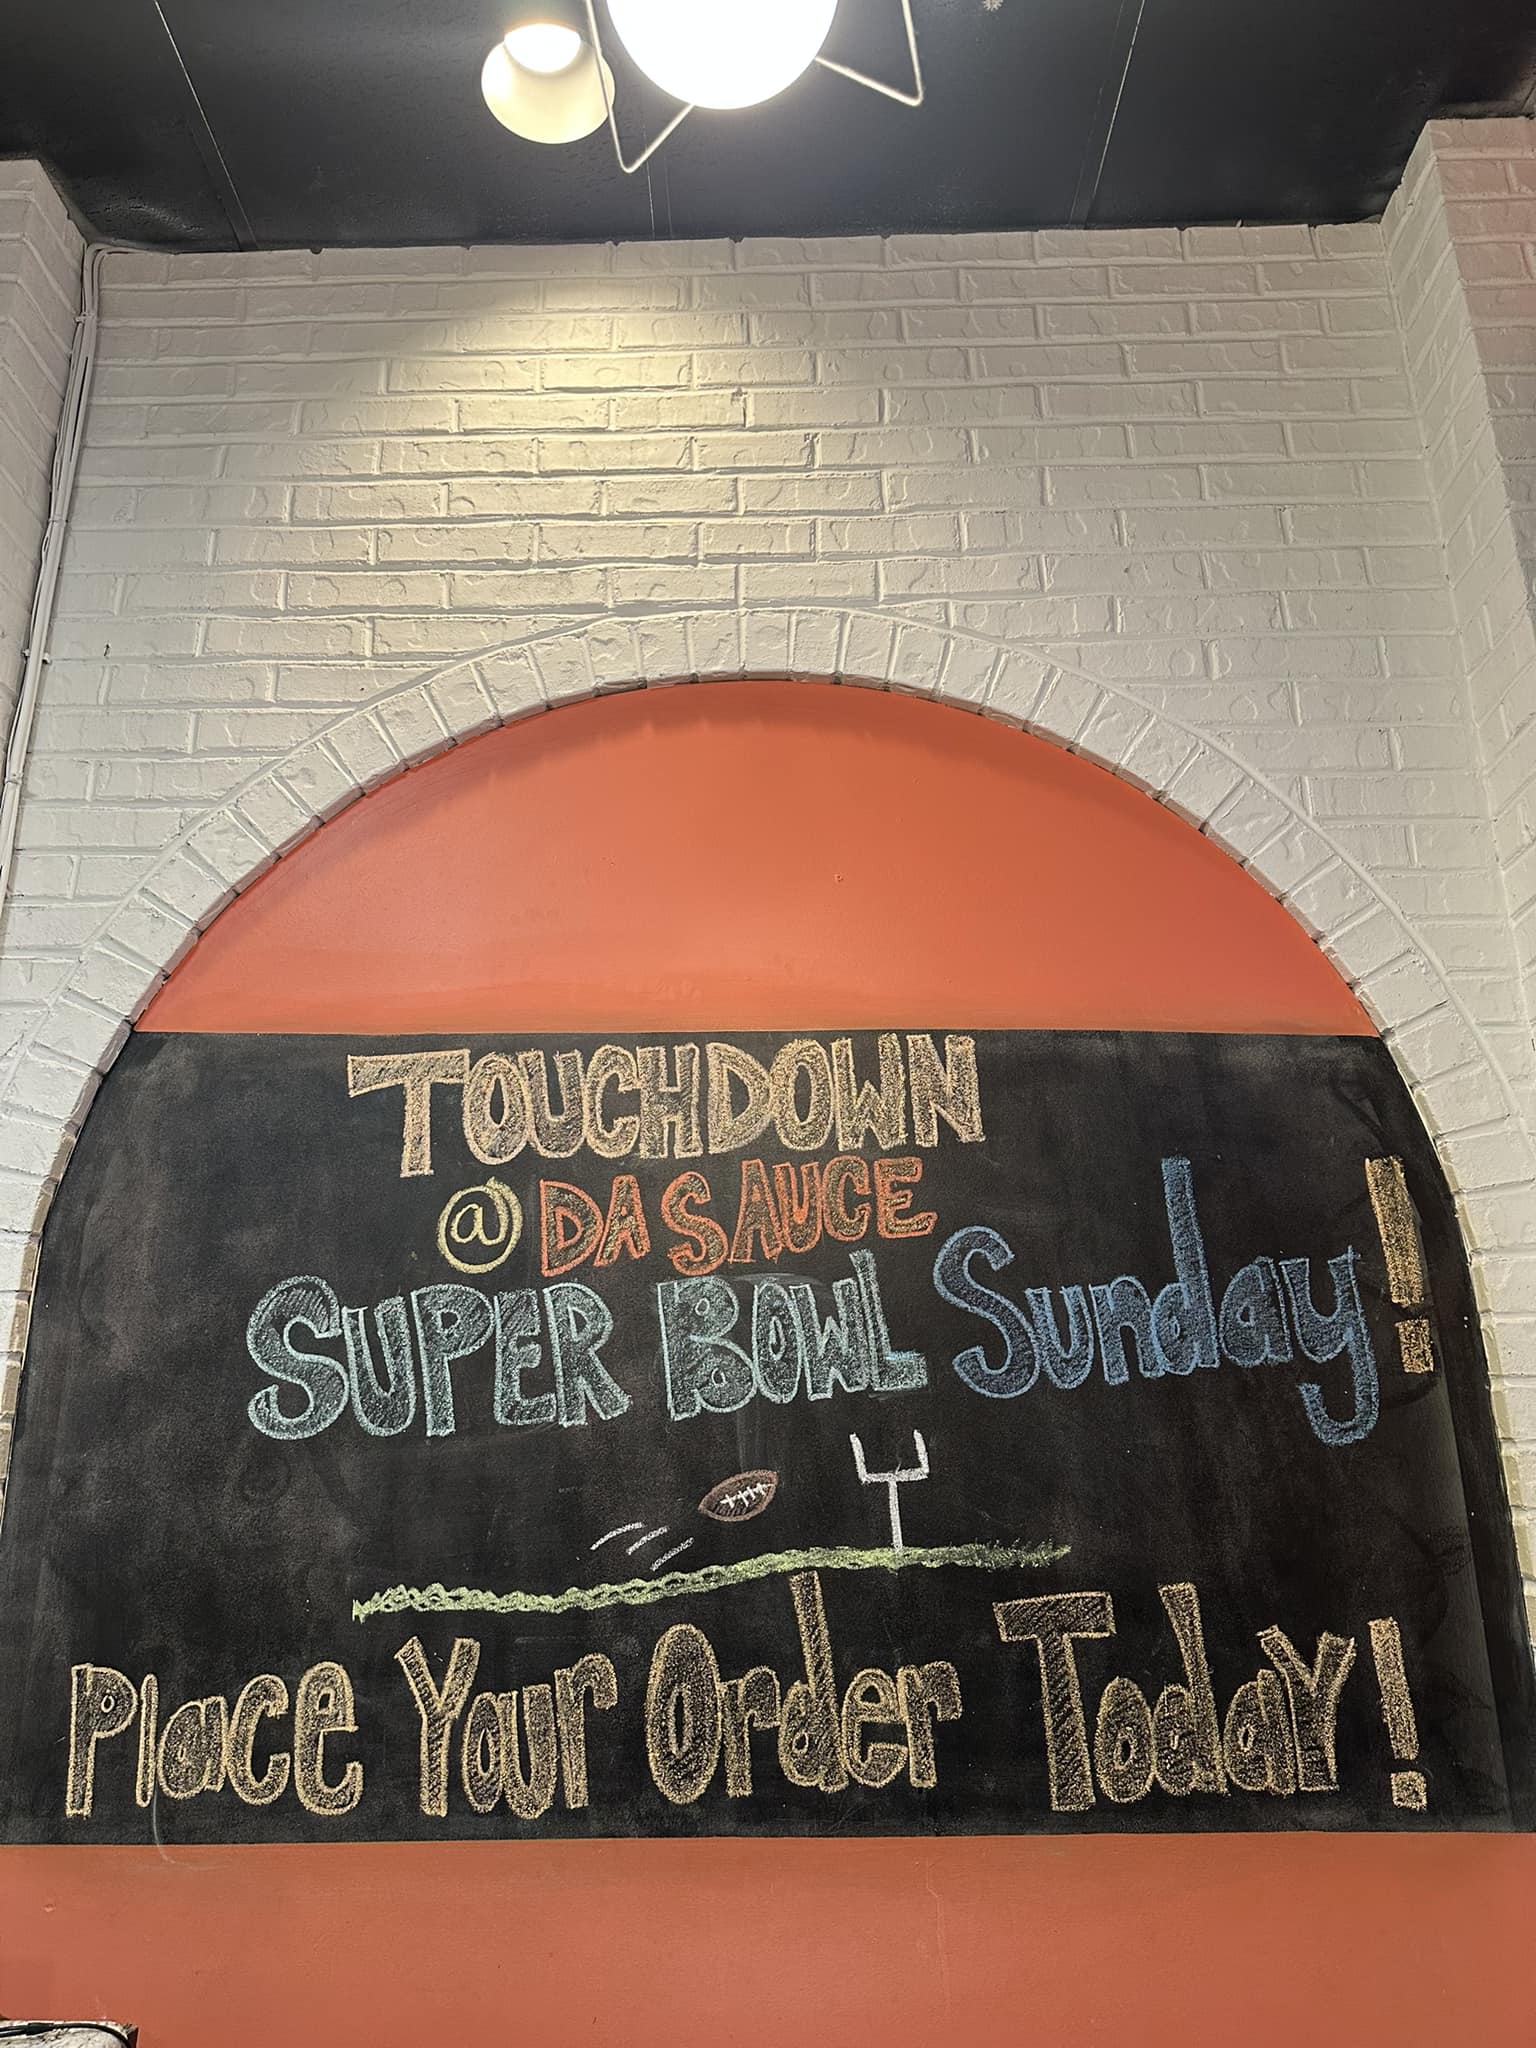 TOUCHDOWN
@ DA SAUCE
SUPER BOWL Sunday!
Place Your Order Today!